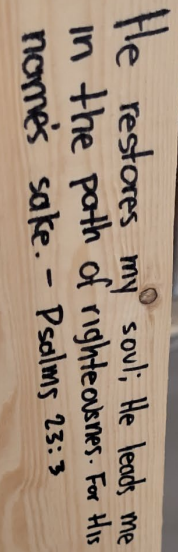 He restores my soul; He leads me
in the path of righteousnes. For His
name's sake. - Psalms 23:3